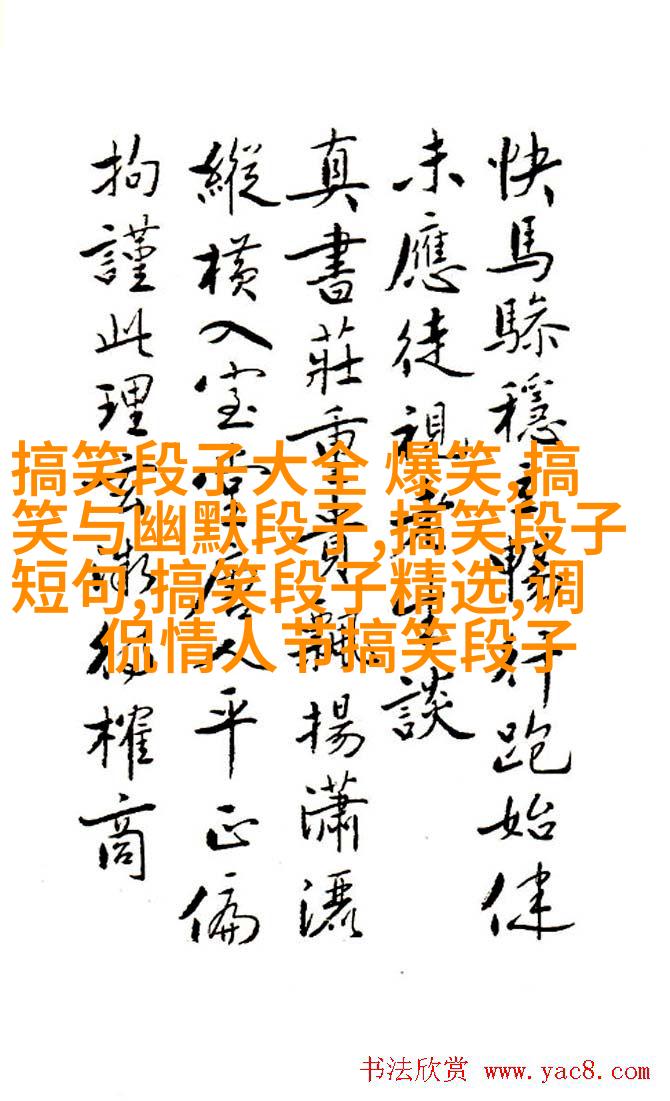 快馬穩行跑始
未應徒視談
真書莊重貴飄揚瀟灑
縱橫入室唐人平正偏
拘謹此理玄微榷商
搞笑段子大全 爆笑,搞
笑与幽默段子,搞笑段子
短句,搞笑段子精选,调
侃情人节搞笑段子
书法欣赏 www.yac8.com